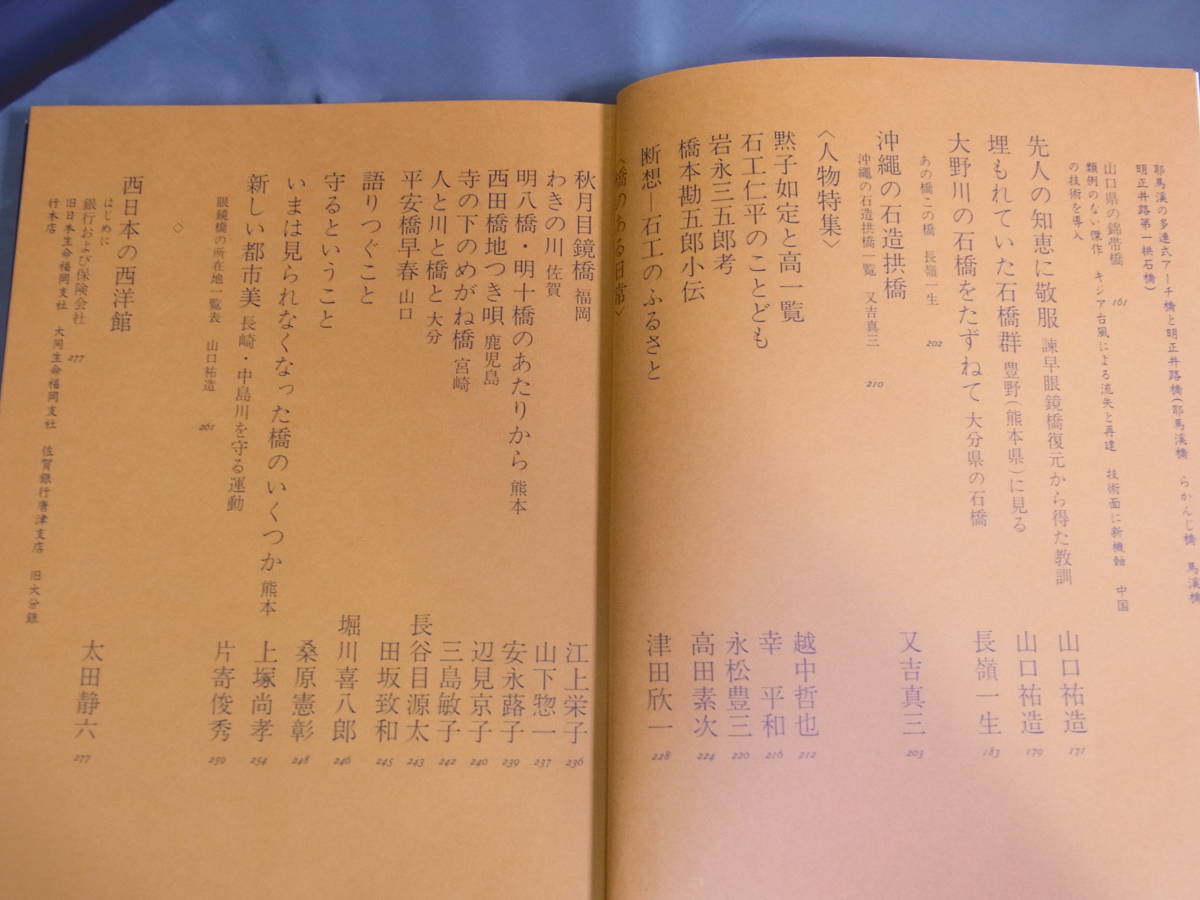 耶馬溪の多連式アーチ橋と明正井路橋(耶馬溪橋　らかんじ橋　馬溪橋
明正井路第一拱石橋)
山口県の錦帯橋　161
類例のない傑作　キジア台風による流失と再建　技術面に新機軸　中国
の技術を導入
先人の知恵に敬服　諫早眼鏡橋復元から得た教訓　山口祐造　171
埋もれていた石橋群　豊野(熊本県)に見る　山口祐造　179
大野川の石橋をたずねて　大分県の石橋　長嶺一生　183
あの橋この橋　長嶺一生　202
沖縄の石造拱橋　又吉真三　203
沖縄の石造拱橋一覧　又吉真三　210
〈人物特集〉
黙子如定と高一覧　越中哲也　212
石工仁平のことども　幸　平和　216
岩永三五郎考　永松豊三　220
橋本勘五郎小伝　高田素次　224
断想—石工のふるさと　津田欣一　228
〈橋のある日常〉
秋月目鏡橋　福岡　江上栄子　236
わきの川　佐賀　山下惣一　237
明八橋・明十橋のあたりから　熊本　安永蕗子　239
西田橋地つき唄　鹿児島　辺見京子　240
寺の下のめがね橋　宮崎　三島敏子　242
人と川と橋と　大分　長谷目源太　243
平安橋早春　山口　田坂致和　245
語りつぐこと　堀川喜八郎　246
守るということ　桑原憲彰　248
いまは見られなくなった橋のいくつか　熊本　上塚尚孝　254
新しい都市美　長崎・中島川を守る運動　片寄俊秀　259
眼鏡橋の所在地一覧表　山口祐造　261
◇
西日本の西洋館　太田静六　277
はじめに
銀行および保険会社　277
旧日本生命福岡支社　大同生命福岡支社　佐賀銀行唐津支店　旧大分銀
行本店